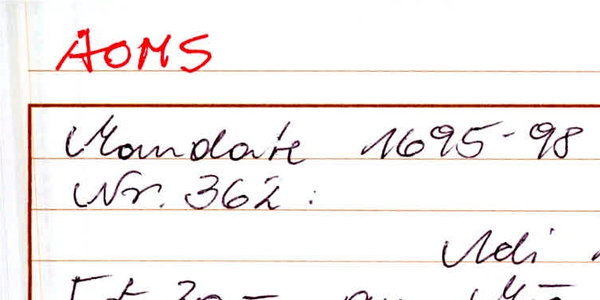 AOMS
Mandate 1695-98
Nr. 362:
Adi